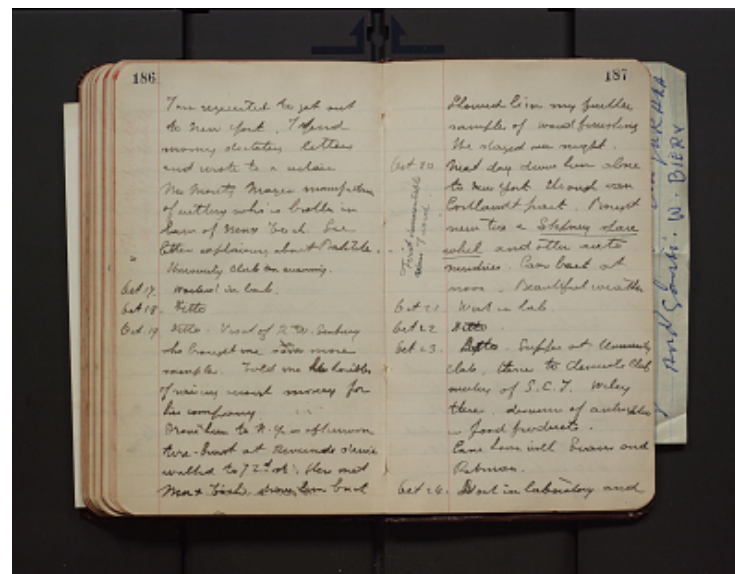 186
I am requested to get out
to New York. I spend
morning dictating letters
and wrote to a certain
Mr Moritz manufacturer
of cutlery who is brother in
law of Max Toch. See
letter explaining about Bakelite.
University club in evening.
Oct 17. Worked in lab.
Oct 18. Ditto
Oct. 19. Ditto. Visit of
who brought me some more
samples. Told me his troubles
of raising enough money for
his company.
Drove him to N.Y. in afternoon
tire burst at Riverside drive
walked to 72d st. Here met
Max Toch, drove him back
187
Showed him my further
samples of wood finishing
He stayed over night.
Oct 20. Next day drove him alone
to New York through van
Cortlandt park. Bought
new tire a Stepney spare
wheel and other auto
Came back at
noon. Beautiful weather
First
time I used
Oct 21 Work in lab.
Oct 22 Ditto
Oct 23. Ditto. Supper at University
club, thence to Chemists Club
meeting of S.C.I. Wiley
there. discussion of
in food products.
Came home with and
Oct 24. Work in laboratory and
W. BIERY